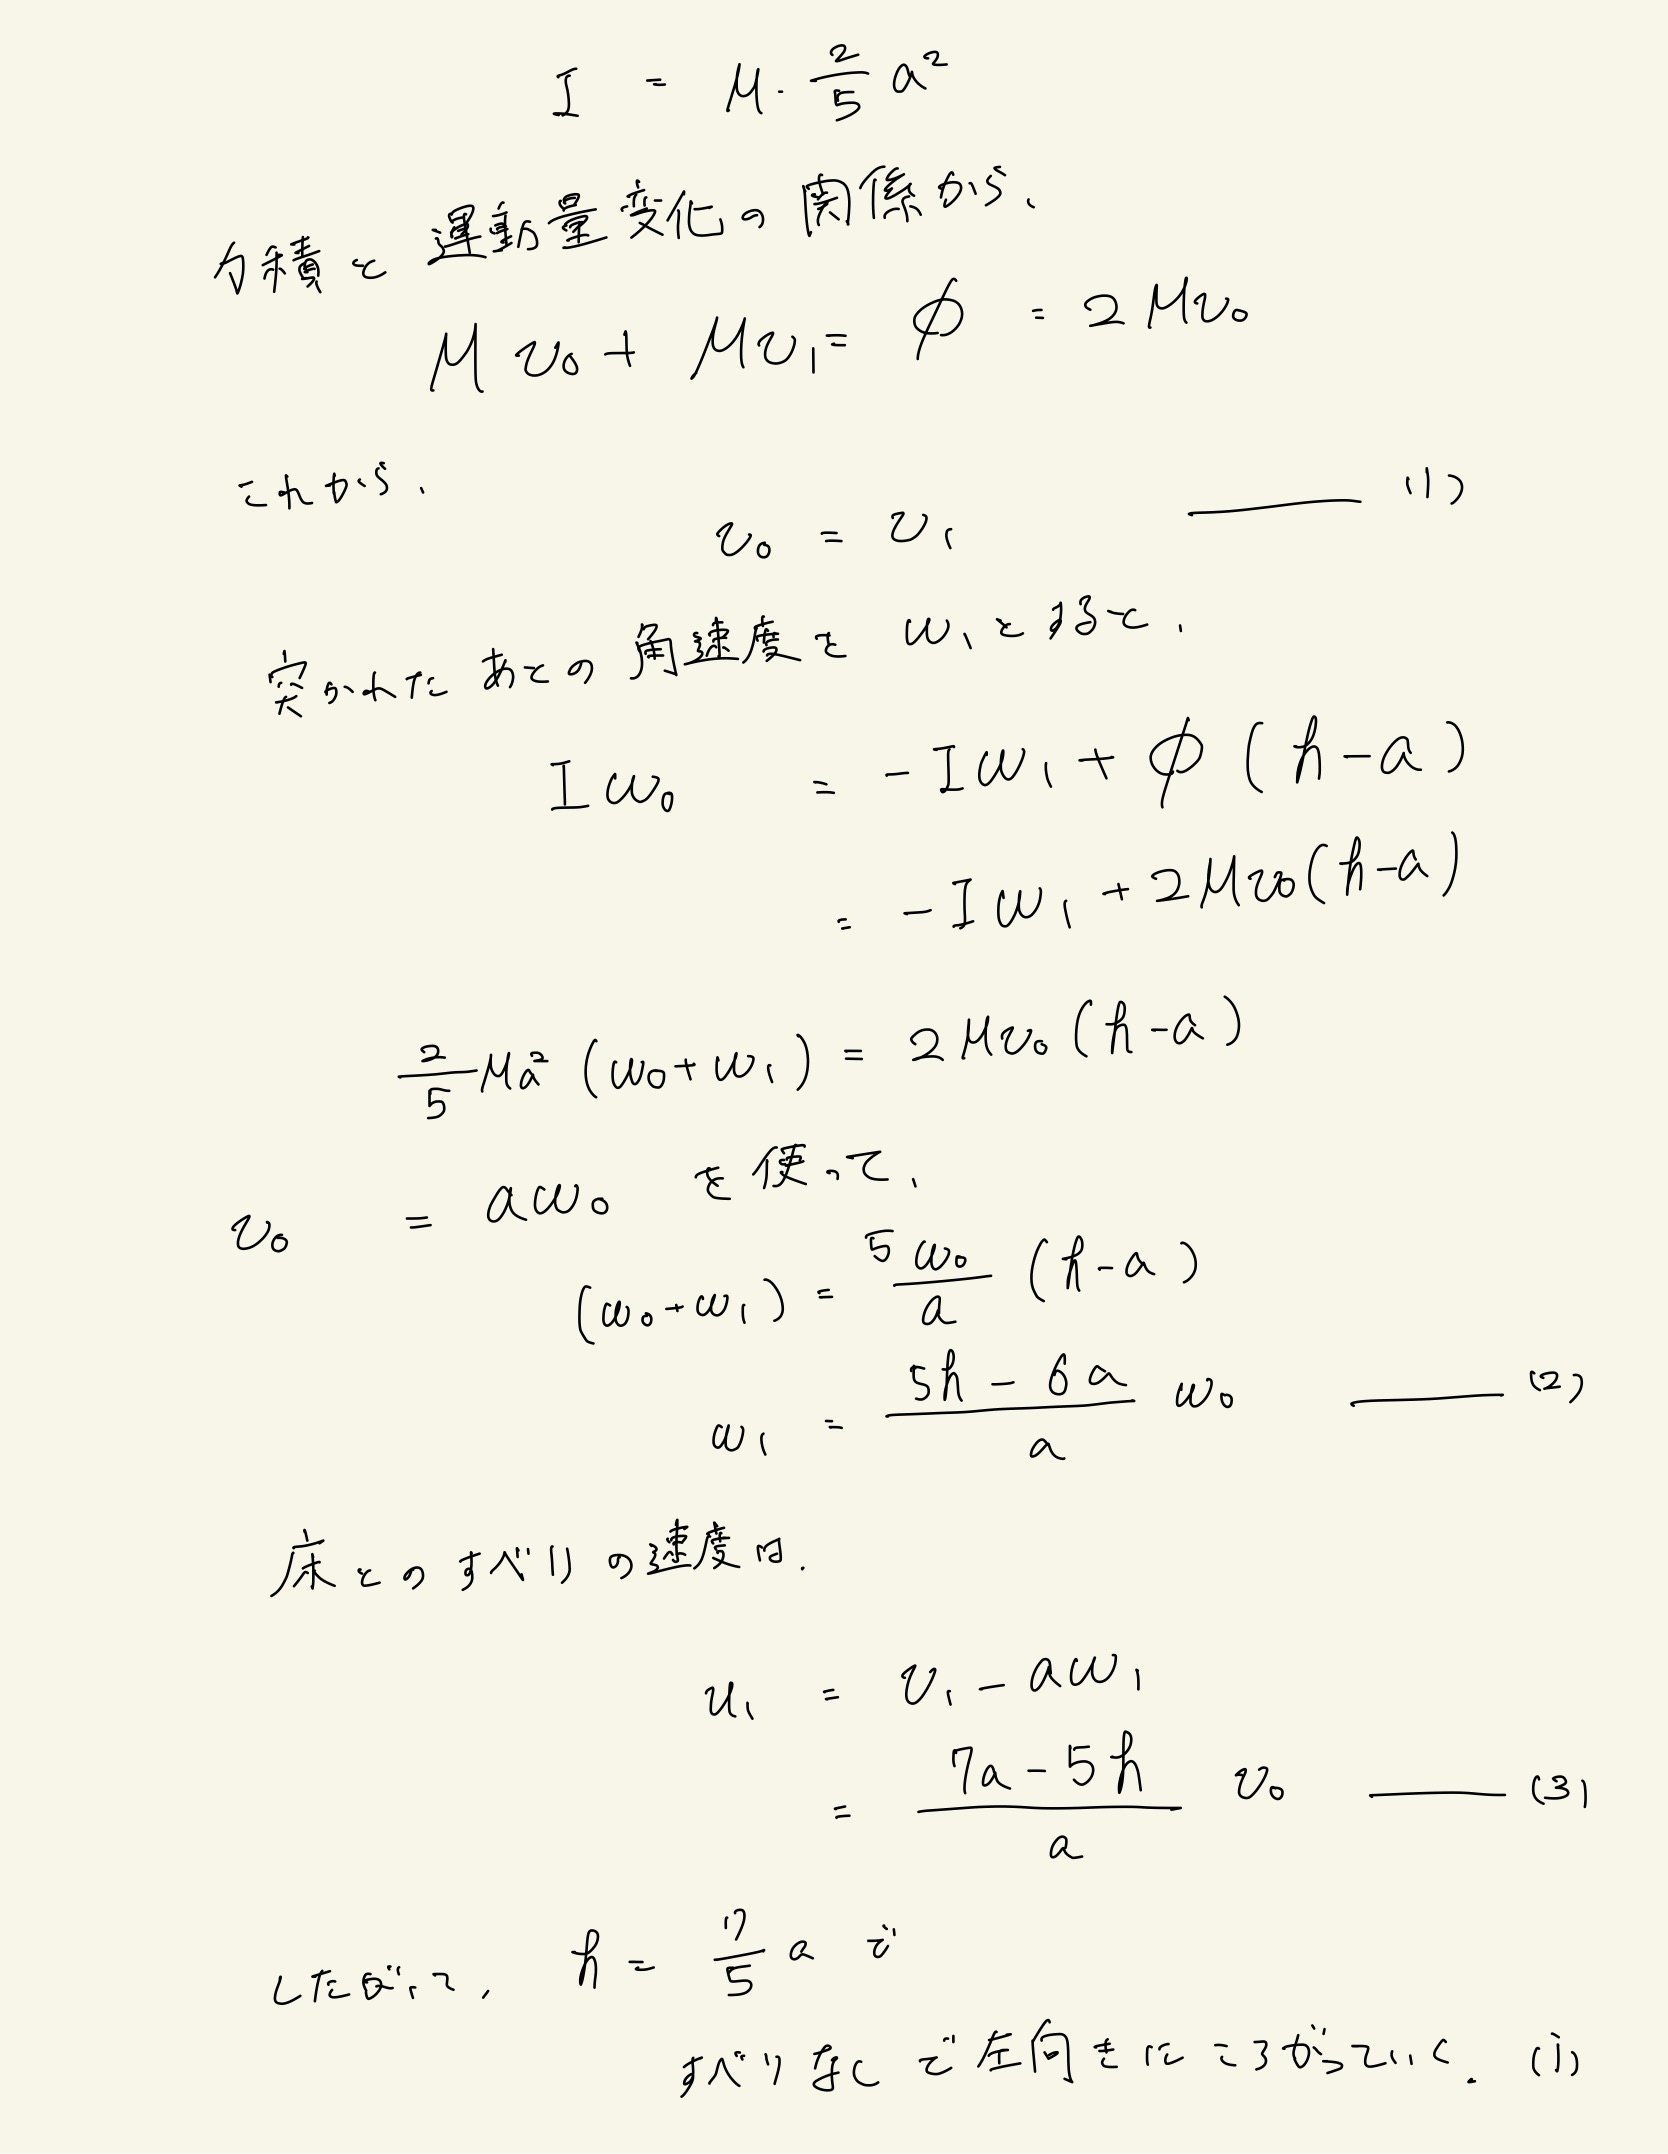 I = M・2/5 a²
力積と運動量変化の関係から、
Mv₀ + Mv₁ = φ = 2Mv₀
これから、
v₀ = v₁ ——— (1)
突かれたあとの角速度を ω₁とすると、
Iω₀ = -Iω₁ + φ(h-a)
= -Iω₁ + 2Mv₀(h-a)
2/5 Ma²(ω₀+ω₁) = 2Mv₀(h-a)
v₀ = aω₀ を使って、
(ω₀+ω₁) = 5ω₀/a (h-a)
ω₁ = (5h - 6a)/a ω₀ ——— (2)
床とのすべりの速度は、
u₁ = v₁ - aω₁
= (7a - 5h)/a v₀ ——— (3)
したがって、h = 7/5 a で
すべりなしで左向きにころがっていく. (i)